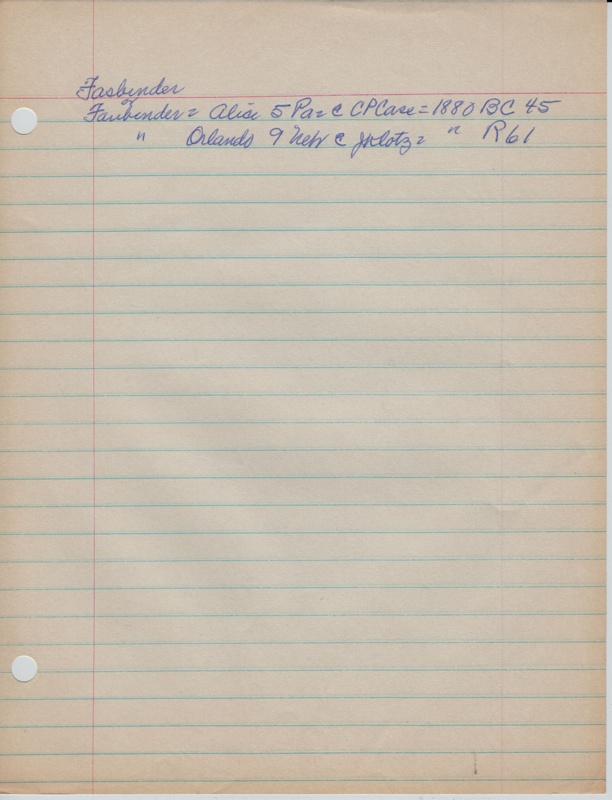 Fasbender
Faubender = Alice 5 Pa = c CP Case = 1880 BC 45
" Orlando 9 Neph c J Klotz = " R61